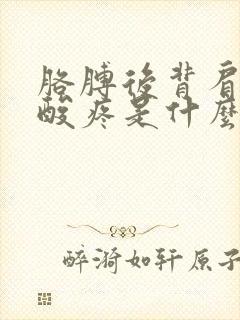 胳膊後背肩
酸疼是什麼
醉漪如轩原子